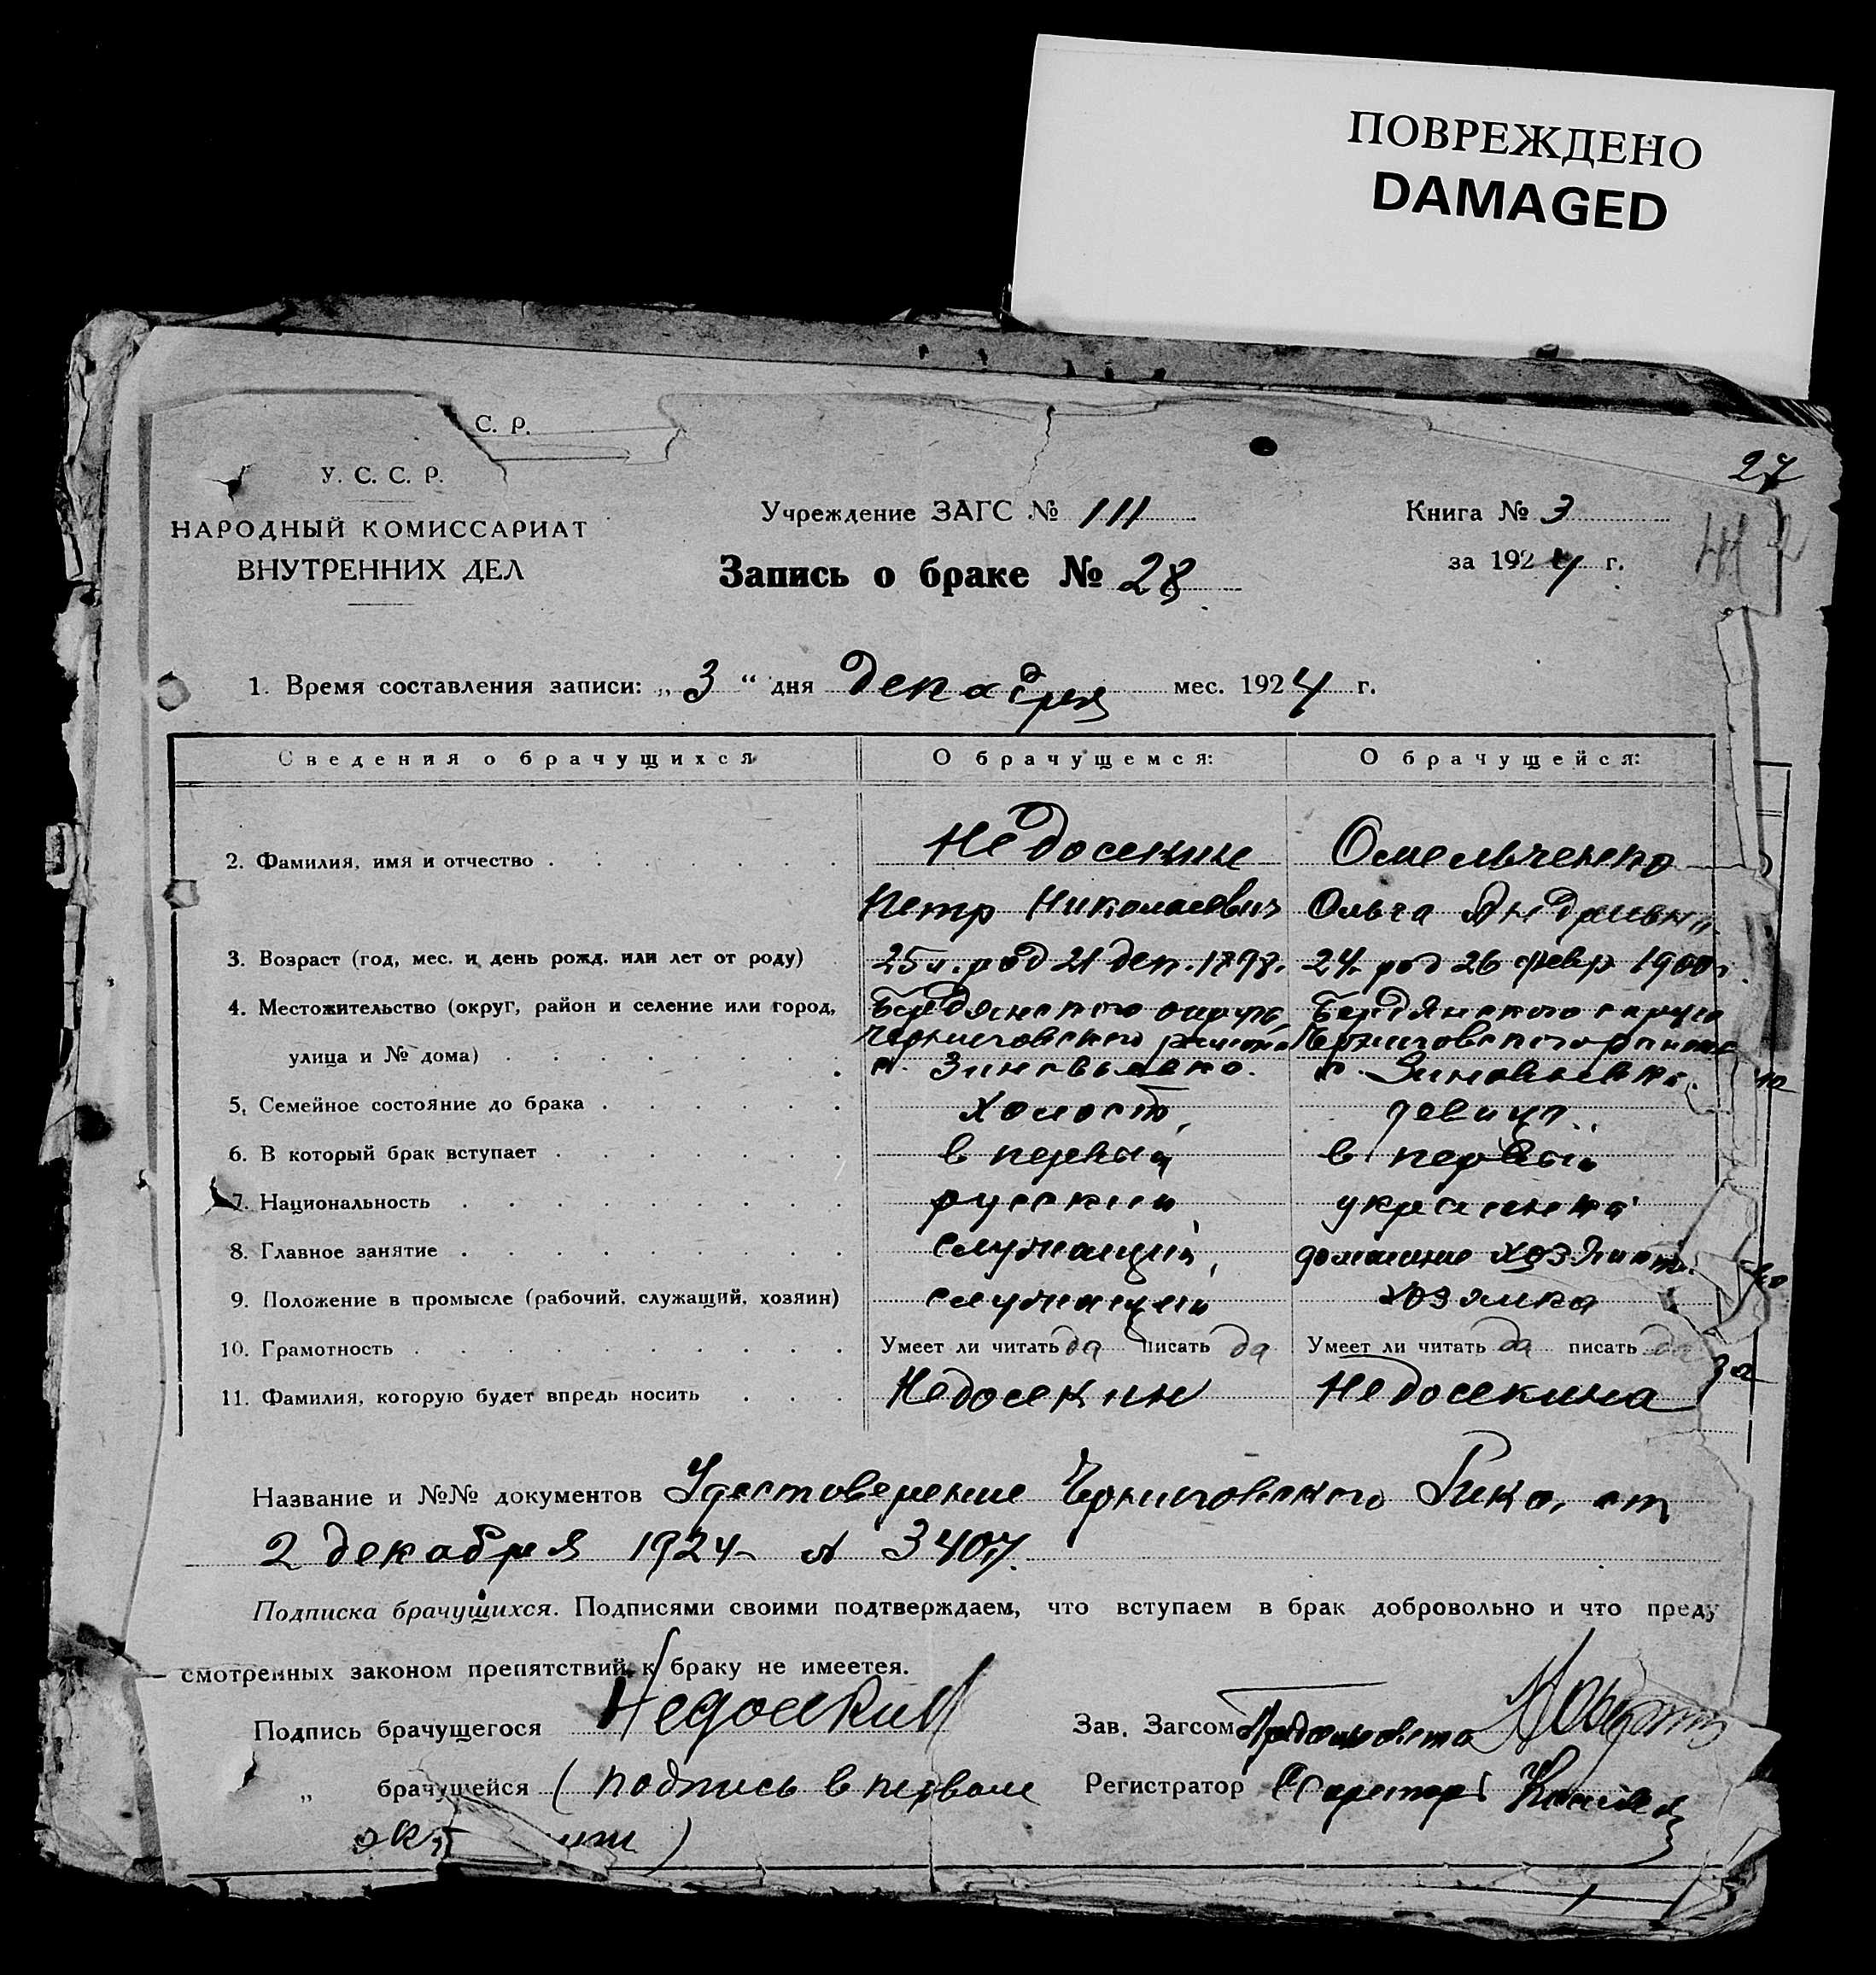 ПОВРЕЖДЕНО
DAMAGED
С. Р.
27
У. С. С. Р.
НАРОДНЫЙ КОМИССАРИАТ
ВНУТРЕННИХ ДЕЛ
Учреждение ЗАГС № 111
Запись о браке № 28
Книга № 3
за 1924 г.
1. Время составления записи: „ 3 “ дня декабря мес. 1924 г.
Сведения о брачущихся О брачущемся: О брачущейся:
2. Фамилия, имя и отчество Недосекин Омельченко
Петр Николаевич Ольга Андреевна
3. Возраст (год, мес. и день рожд. или лет от роду) 25 л. род 21 дек. 1898. 24. род 26 февр 1900 г.
4. Местожительство (округ, район и селение или город, Бердянского округа, Бердянского округа
Черниговского района Черниговского района
улица и № дома) с. Зиновьевка. с. Зиновьевка.
5. Семейное состояние до брака холост, девица.
6. В который брак вступает в первый в первый
7. Национальность русский украинка
8. Главное занятие служащий, домашнее хозяйств.
9. Положение в промысле (рабочий, служащий, хозяин) служащий хозяйка
10. Грамотность Умеет ли читать да писать да Умеет ли читать да писать да
11. Фамилия, которую будет впредь носить Недосекин Недосекина
Название и №№ документов Удостоверение Черниговского Рика, от
2 декабря 1924 № 3407.
Подписка брачущихся. Подписями своими подтверждаем, что вступаем в брак добровольно и что преду
смотренных законом препятствий к браку не имеетея.
Подпись брачущегося Недосекин
Зав. Загсом
„ брачущейся (подпись в первом
Регистратор Секретарь
эк )